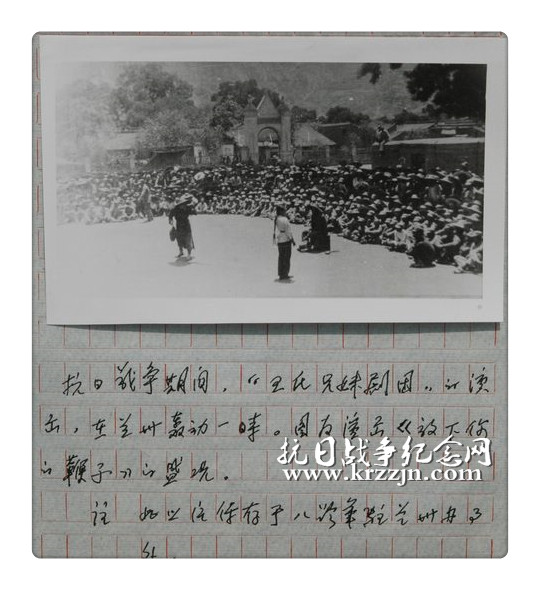 抗日战争期间，“王氏兄妹剧团”的演
出，在兰州轰动一时。图为演出《放下你
的鞭子》的盛况。
抗日战争纪念网
www.krzzjn.com
注 此照保存于八路军驻兰州办事
处